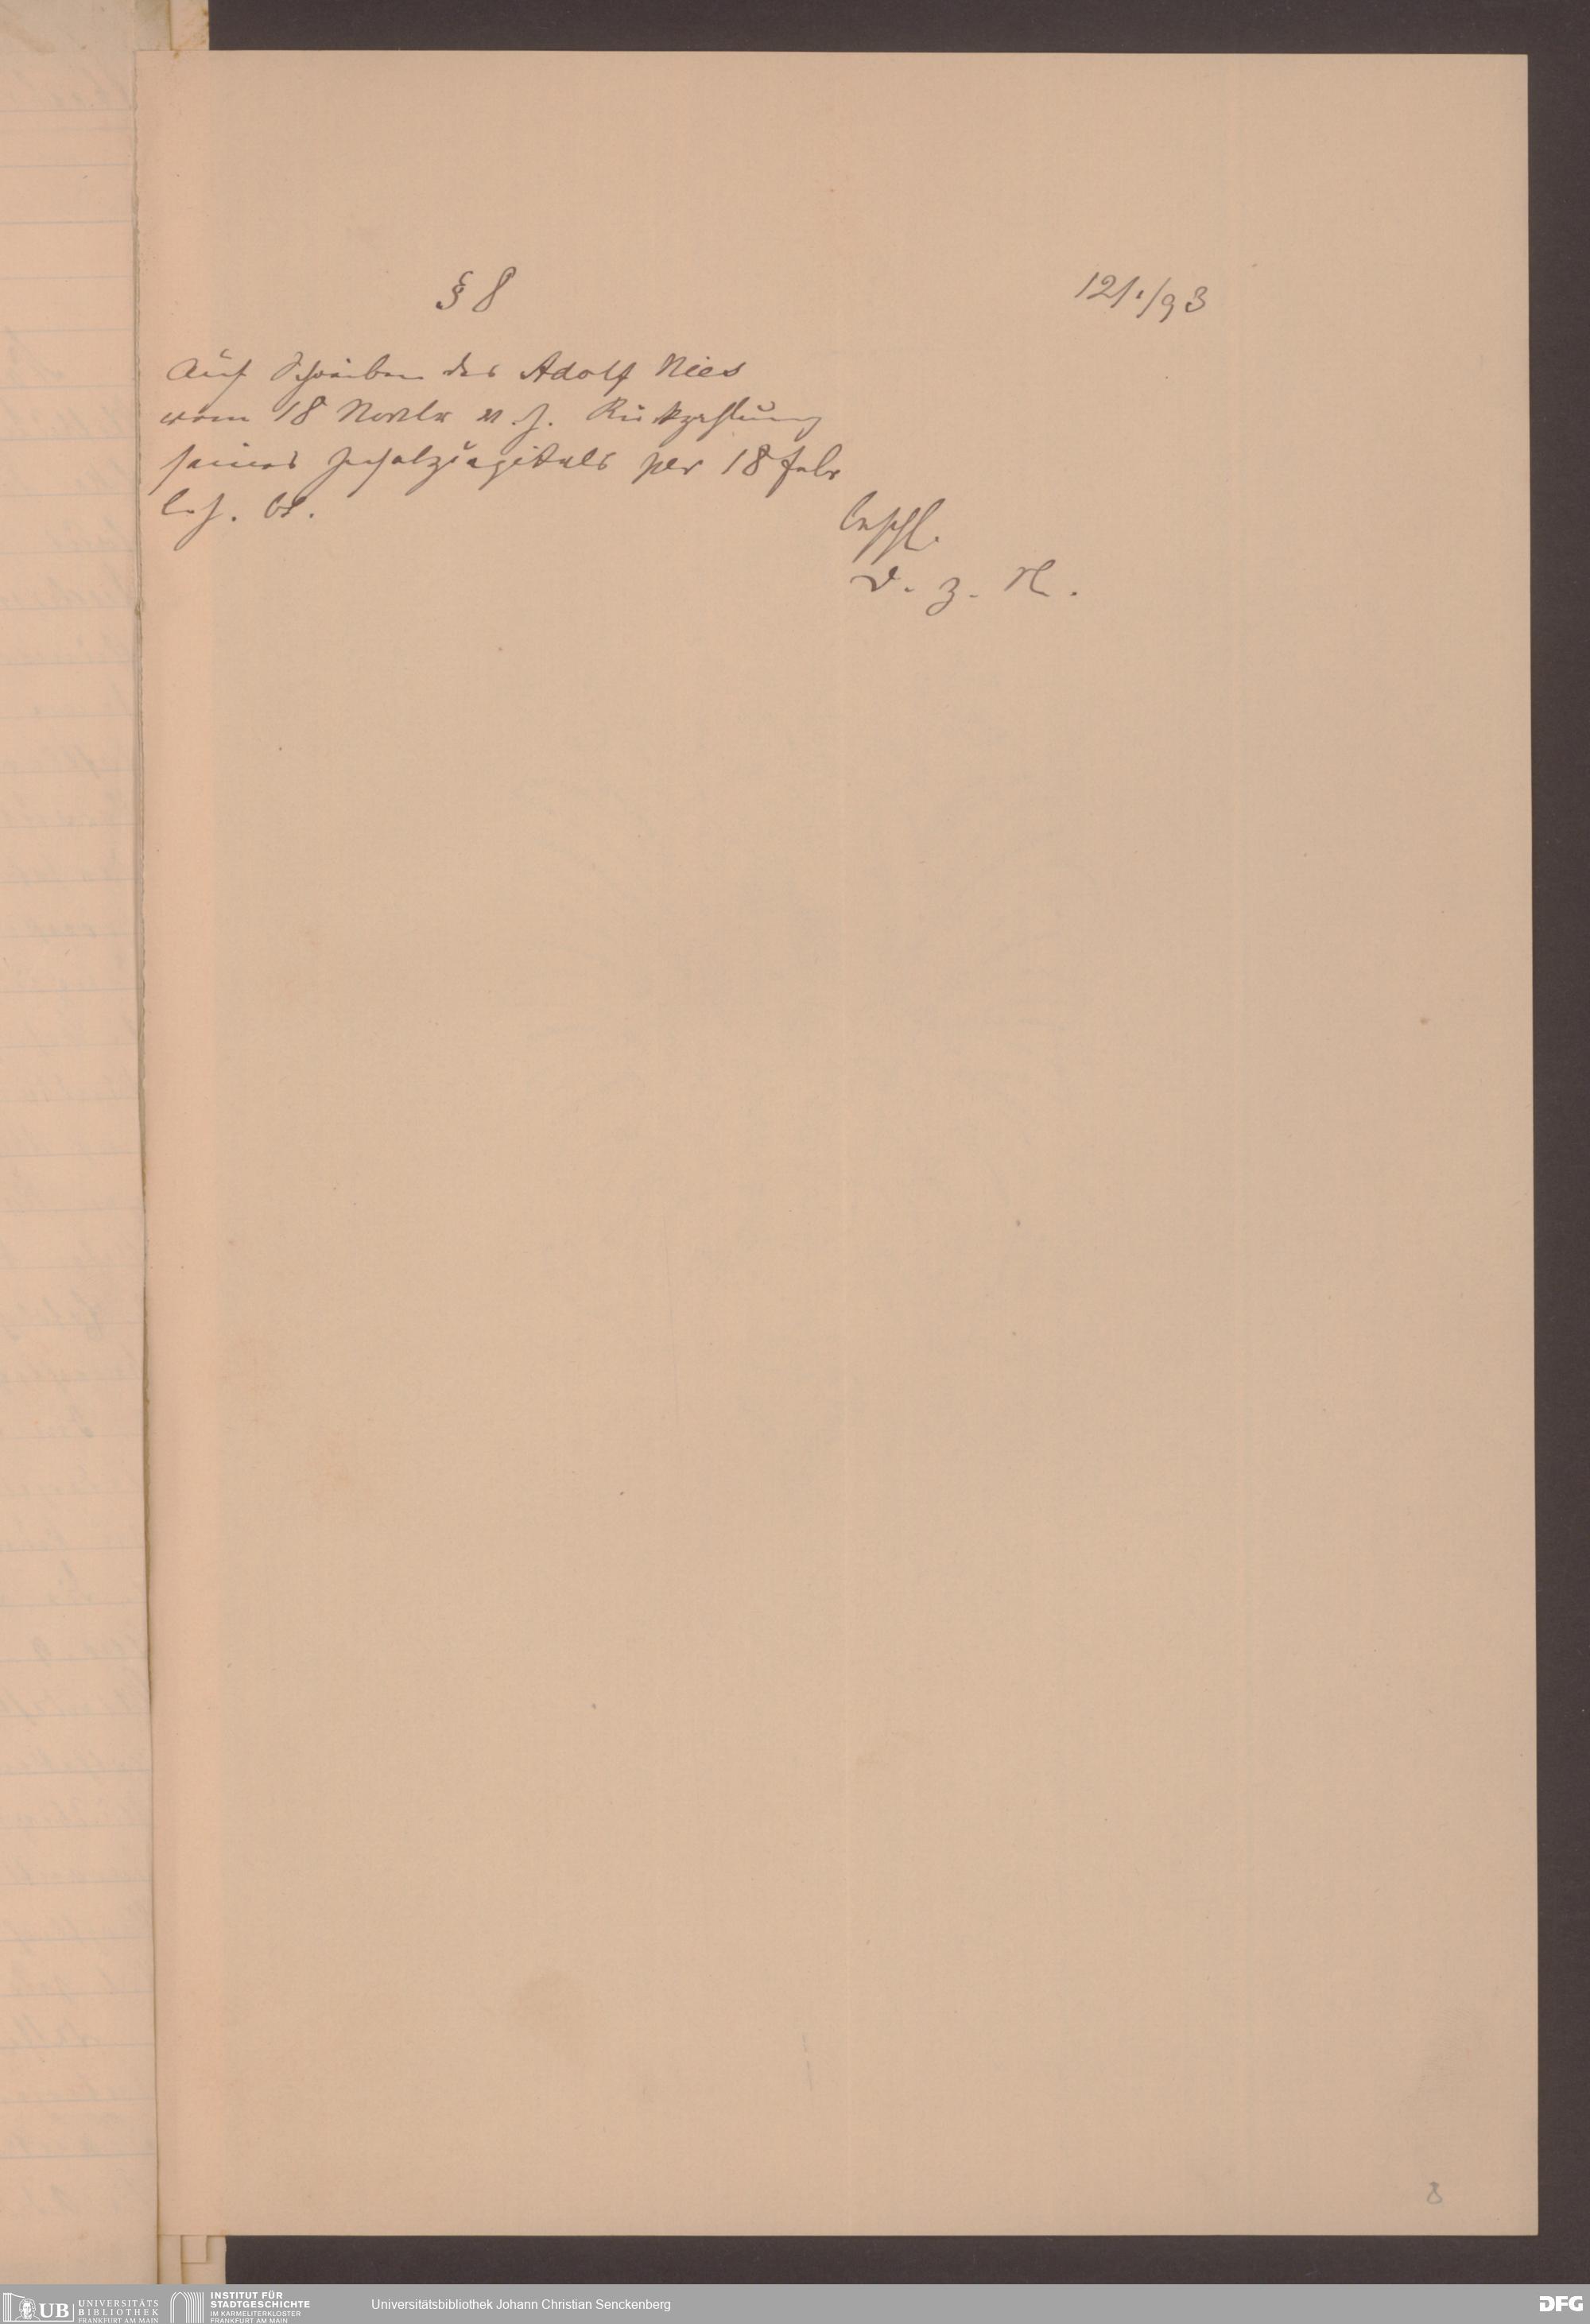 § 8
12/1/93
Auf Schreiben des Adolf Nies
vom 18 Novbr v. J. Rückzahlung
seines per 18 Febr
l. J. btr.
beschl.
d. z. N.
8
UB UNIVERSITÄTS
BIBLIOTHEK
FRANKFURT AM MAIN
INSTITUT FÜR
STADTGESCHICHTE
IM KARMELITERKLOSTER
FRANKFURT AM MAIN
Universitätsbibliothek Johann Christian Senckenberg
DFG